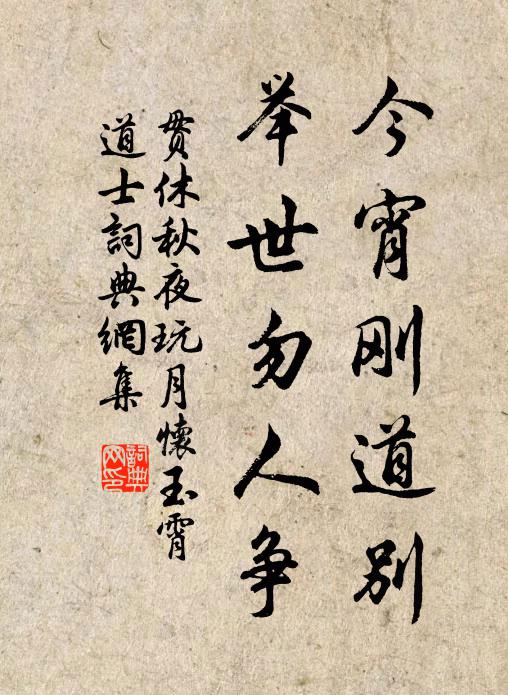 今宵刚道别
举世勿人争
贯休秋夜玩月怀玉霄
道士詞典網集
詞典网印